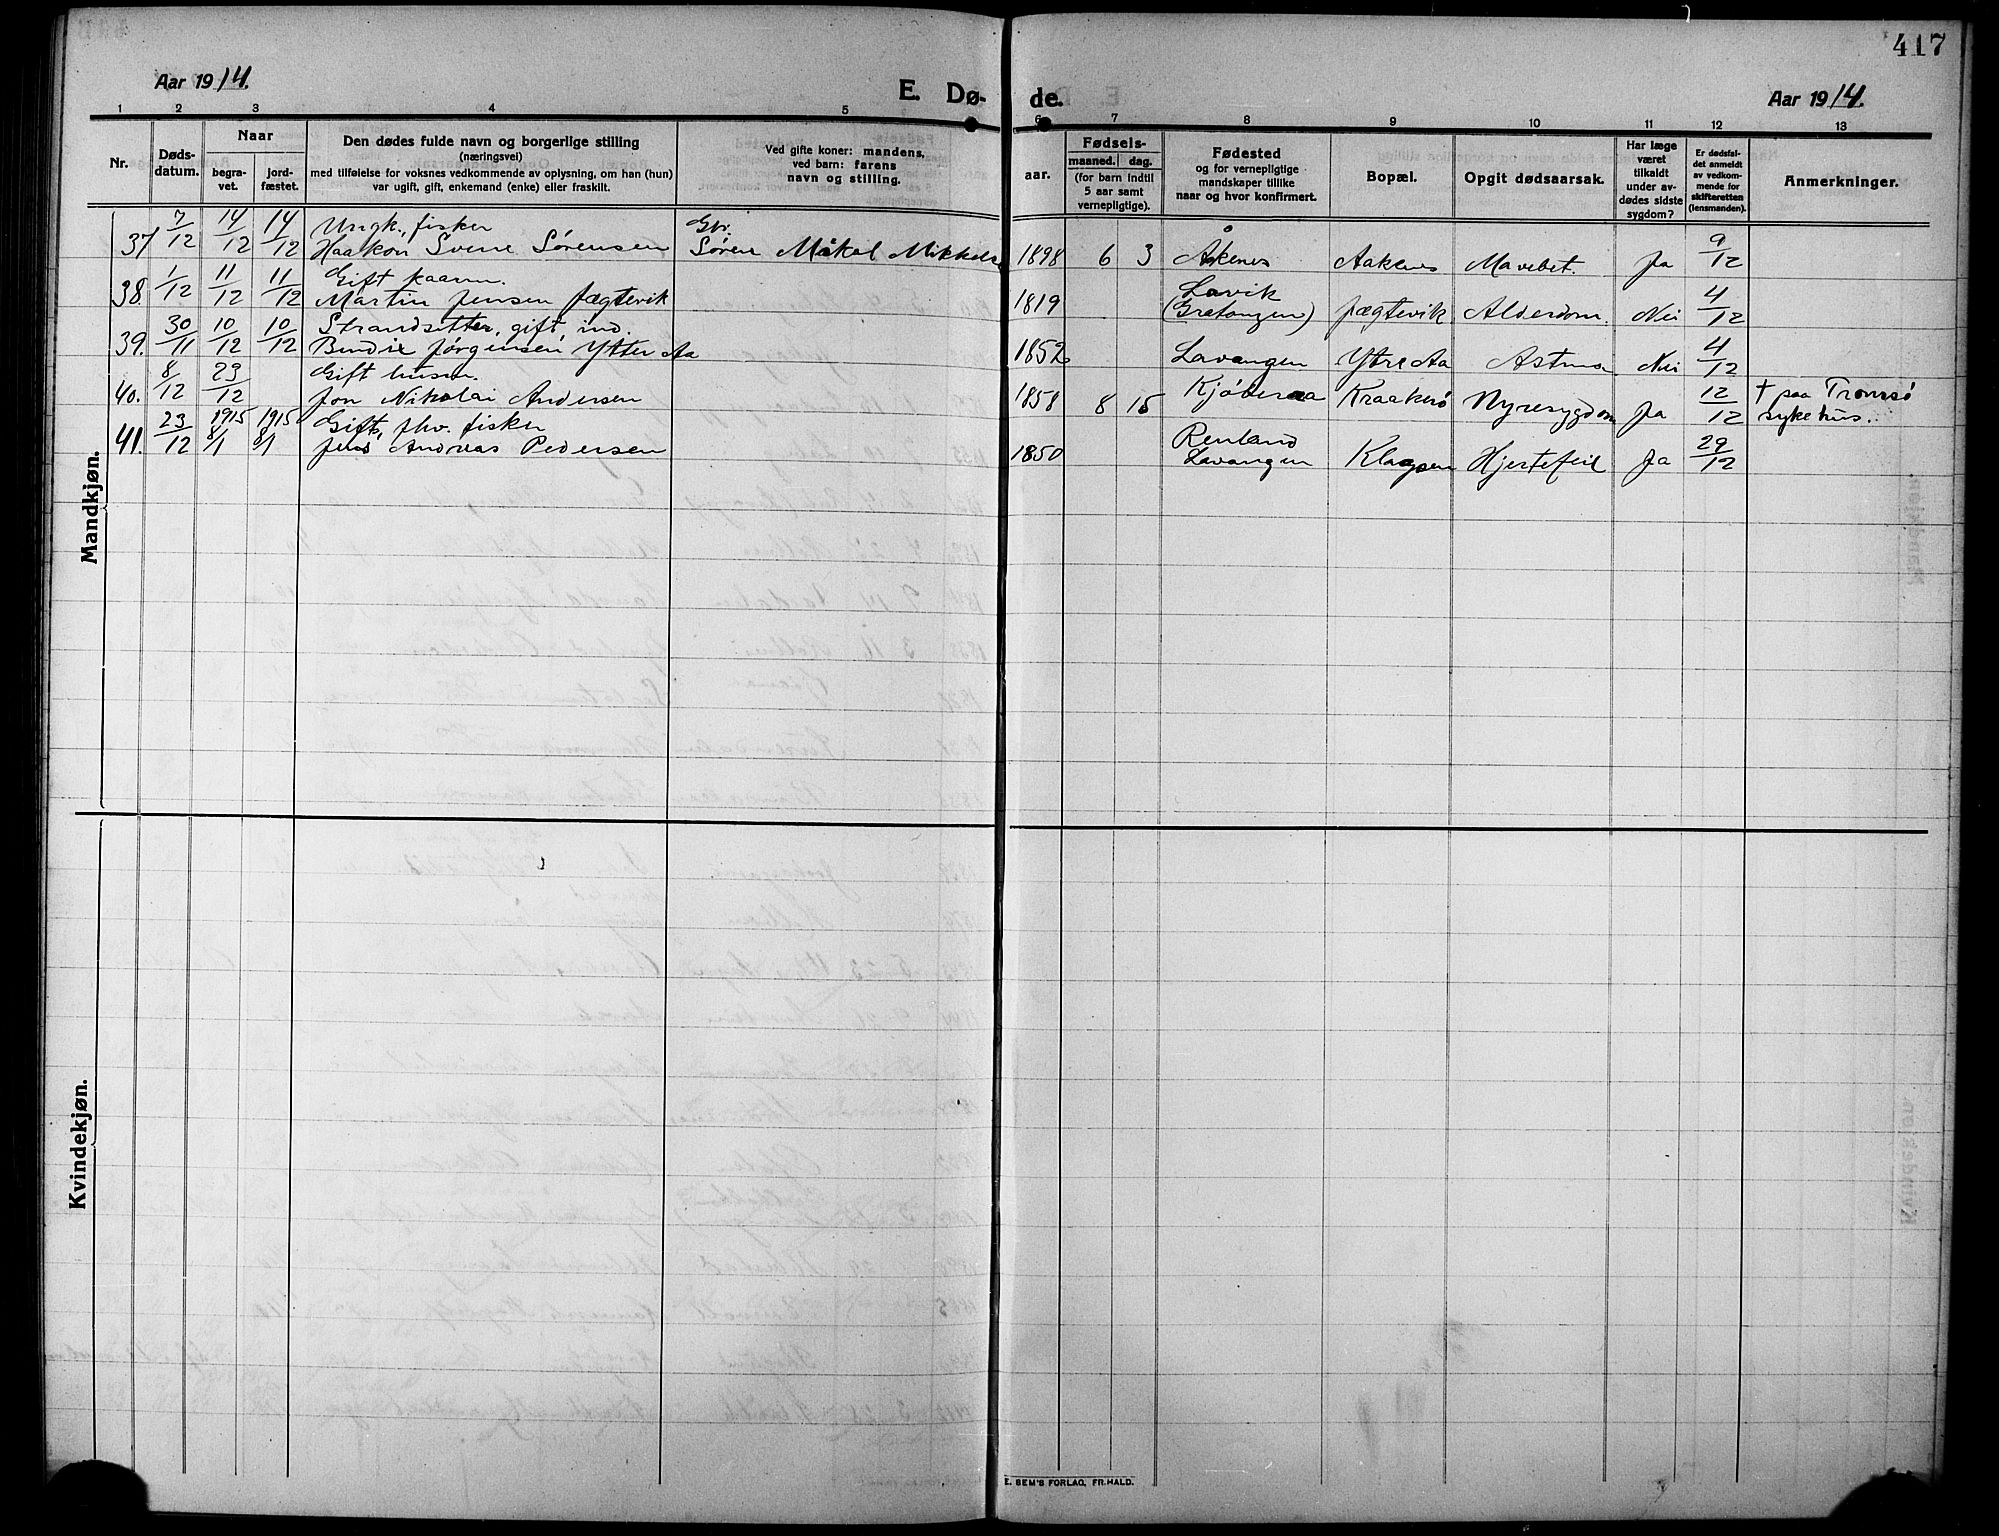 417
Aar 1914.
E. Dø- de.
Aar 1914.
1 2 3 4 5 6 7 8 9 10 11 12 13
Nr.
Døds-
datum.
Naar
begra-
vet.
jord-
fæstet.
Den dødes fulde navn og borgerlige stilling
(næringsvei)
med tilføielse for voksnes vedkommende av oplysning, om han (hun)
var ugift, gift, enkemand (enke) eller fraskilt.
Ved gifte koner: mandens,
ved barn: farens
navn og stilling.
aar.
Fødsels-
maaned. dag.
(for barn indtil
5 aar samt
vernepligtige).
Fødested
og for vernepligtige
mandskaper tillike
naar og hvor konfirmert.
Bopæl.
Opgit dødsaarsak.
Har læge
været
tilkaldt
under av-
dødes sidste
sygdom?
Er dødsfal-
det anmeldt
av vedkom-
mende for
skifteretten
(lensmanden).
Anmerkninger.
Mandkjøn.
7/12 14/12 14/12 Ungk., fisker Gbr.
37 Haakon Svene Sørensen Søren Mikal Mikkels. 1898 6 3 Åkenes Aakenes Mavebet. Ja 9/12
1/12 11/12 11/12 Gift kaarm. Lavik
38 Martin Jensen Jægtevik 1819 (Gratangen) Jægtevik Alderdom. Nei 4/12
30/11 10/12 10/12 Strandsitter, gift, ind.
39. Bendix Jørgensen Ytter Aa 1852 Lavangen Ytre Aa Astma Nei 4/12
8/12 29/12 Gift husm.
40. Jon Nikolai Andersen 1858 8 15 Kjøberaa Kraakerø Nyresygdom Ja 12/12 † paa Tromsø
sykehus.
23/12 1915 8/1 1915 8/1 Gift, fhv. fisker Renland
41. Jens Andreas Pedersen 1850 Lavangen Klagsen Hjertefeil Ja 29/12
Kvindekjøn.
E. SEM'S FORLAG, FR. HALD.